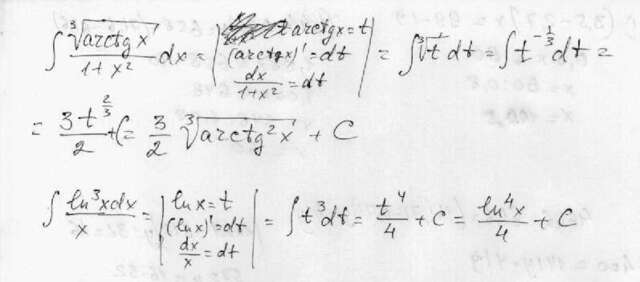 ∫ ∛(arctg x) / (1+x²) dx = | arctgx = t; (arctgx)' = dt; dx/(1+x²) = dt | = ∫ ∛t dt = ∫ t^(-1/3) dt =
= 3t^(2/3) / 2 + C = 3/2 ∛(arctg²x) + C
∫ ln³xdx / x = | lnx = t; (lnx)' = dt; dx/x = dt | = ∫ t³dt = t⁴/4 + C = ln⁴x/4 + C